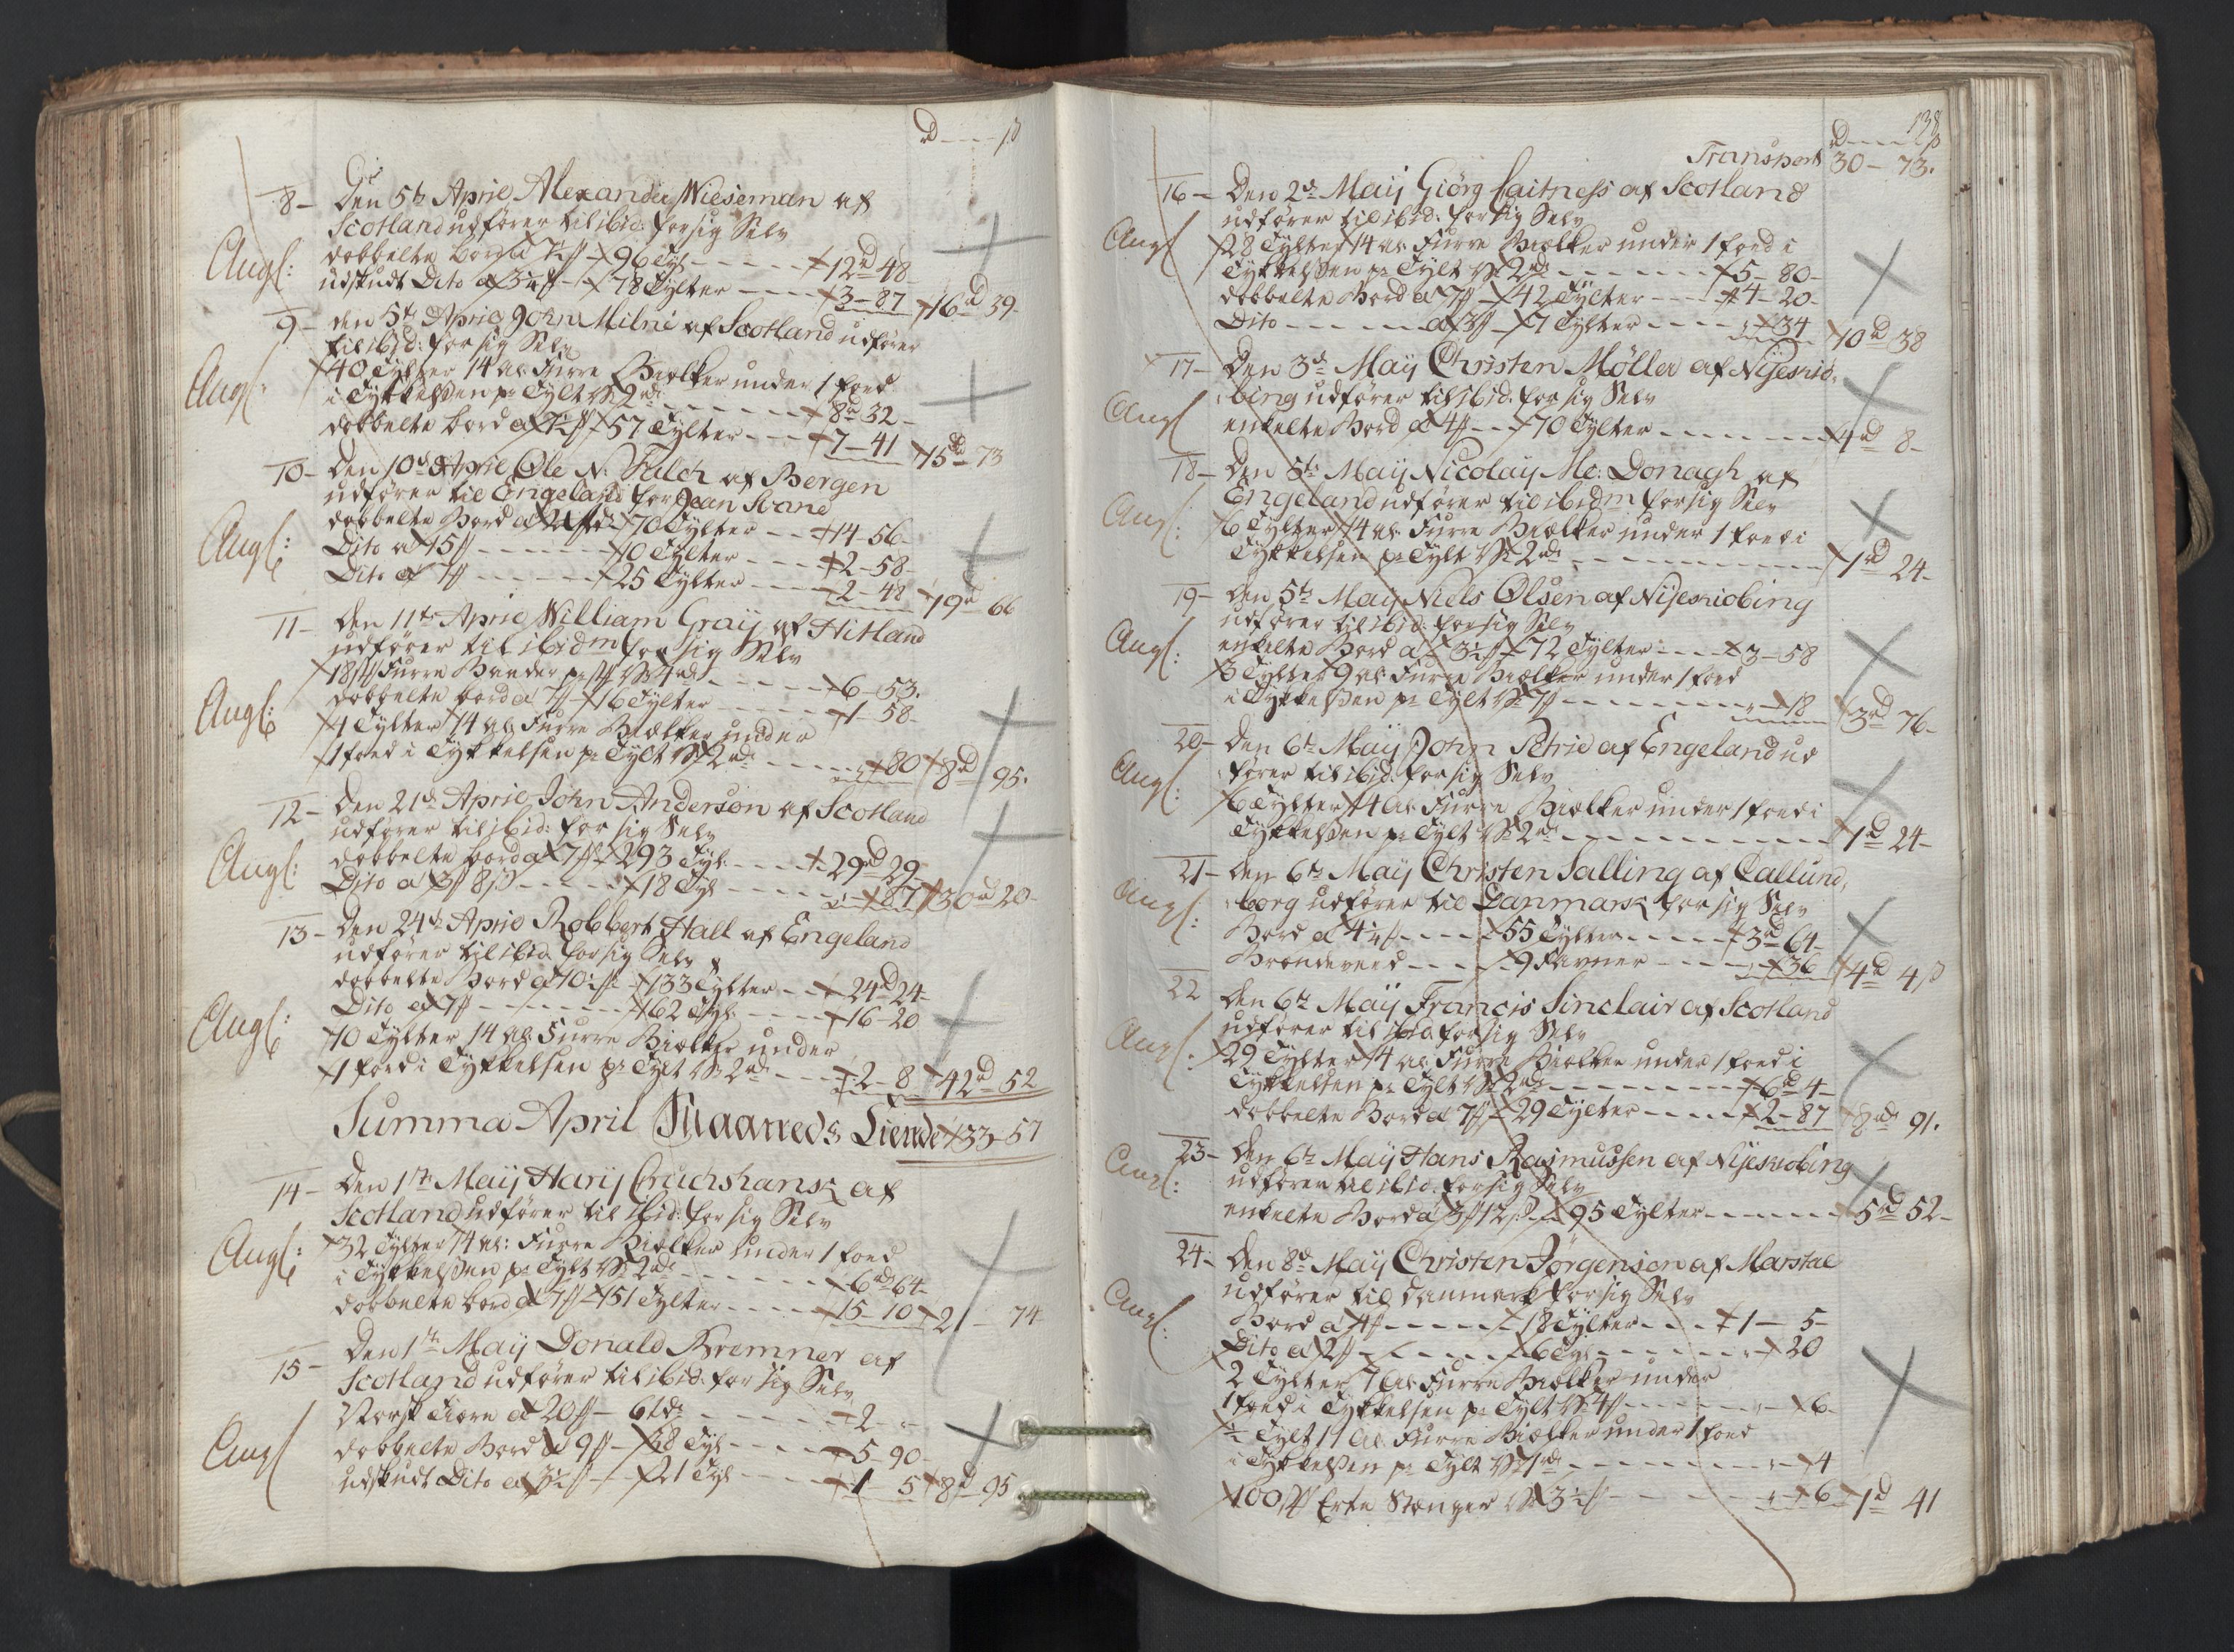 rd --- ß
8 - Den 5te April Alexander Wieseman af
Scotland udfører til ibid: for sig Selv
Angl:
dobbelte bord a 7½ ß 96 Tyl ---- 12rd 48
udskudt Dito a 3¼ ß 78 Tylter --- 3 - 87 16rd 39
9 - den 5te April John Milni af Scotland udfører
til ibid: for sig Selv
Angl:
40 Tylter 14 al: Furre Biælker under 1 foed
i Tykkelsen pr Tylt 2rd ---- 8rd 32
dobbelte bord a 7½ ß 57 Tylter --- 7 - 41 15rd 73
10 - Den 10de April Ole N: Falch af Bergen
udfører til Engeland for Jean
Angl:
dobbelte Bord a 70 Tylter --- 14 - 56
Dito a 15 ß ---- 10 Tylter --- 2 - 58
Dito a 7 ß ---- 25 Tylter --- 2 - 48 19rd 66
11 - Den 11te April William Graij af Hitland
udfører til ibidm for sig Selv
18 Furre 4rd ---- 6 - 53.
Angl:
dobbelte bord a 7 ß 16 Tylter --- 1 - 58
4 Tylter 14 al: Furre Biælker under
1 foed i Tykkelsen pr Tylt 2rd --- 80 8rd 95.
12 - Den 21de April John Anderson af Scotland
udfører til ibid: for sig Selv
Angl:
dobbelte bord a 7 ß 293 Tyl ---- 29rd 29
Dito a 3 8 ß ---- 18 Tyl ---- 87 30rd 20
13 - Den 24de April Robbert Hall af Engeland
udfører til ibid: for sig Selv
dobbelte Bord a 10½ ß 133 Tylter -- 24rd 24
Angl:
Dito a 7 ß ---- 162 Tyl: ---- 16 - 20
10 Tylter 14 al: Furre Biælker under
1 foed i Tykkelsen pr Tylt 2rd --- 2 - 8 42rd 52
Summa April Maaneds Tiende 133 - 57
14 - Den 1te Maij Harij Cruchshansk af
Scotland udfører til ibid: for sig Selv
Angl:
32 Tylter 14 al: Furre Biælker under 1 foed
i Tykkelsen pr Tylt 2rd ---- 6rd 64
dobbelte bord a 7 ß 151 Tylter --- 15 - 10 21 - 74
15 - Den 1te Maij Donald Bremner af
Scotland udfører til ibid: for sig Selv
Norsk Tiere a 20 ß - 6 tdr ---- 2 -
Angl
dobbelte Bord a 9 ß - 38 Tyl ---- 5 - 90
udskudt Dito a 3½ ß - 21 Tyl ---- 1 5 8rd 95
138
rd --- ß
Transport 30 - 73.
16 - Den 2de Maij Giörg Caitness af Scotland
udfører til ibid: for sig Selv
Angl
28 Tylter 14 al: Furre Biælker under 1 foed i
Tykkelsen pr Tylt 2rd ---- 5 - 80
dobbelte Bord a 7 ß 42 Tylter --- 4 - 20
Dito ---- a 3 ß 7 Tylter --- 34 10rd 38
17 - Den 3de Maij Christen Møller af Nijekiø
bing udfører til ibid: for sig Selv
Angl
enkelte Bord a 4 ß -- 70 Tylter ---- 4rd 8
18 - Den 5te Maij Nicolaij Mc: Donagh af
Engeland udfører til ibidm for sig Selv
Angl:
6 Tylter 14 al: Furre Biælker under 1 foed i
Tykkelsen pr Tylt 2rd ---- 1rd 24
19 - Den 5te Maij Niels Olsen af Nijekiobing
udfører til ibid: for sig Selv
Angl:
enkelte Bord a 3½ ß 72 Tylter --- 3 - 58
3 Tylter 9 al: Furre Biælker under 1 foed
i Tykkelsen pr Tylt 7 ß ---- 18 3rd 76
20 - Den 6te Maij John Petrie af Engeland ud
fører til ibid: for sig Selv
Angl:
6 Tylter 14 al: Furre Biælker under 1 foed i
Tykkelsen pr Tylt 2rd ---- 1rd 24
21 - Den 6te Maij Christen Salling af Callund
borg udfører til Danmark for sig Selv
Angl:
Bord a 4 ß ---- 55 Tylter ---- 3rd 64
Brændeveed ---- 9 Favner ---- 36 4rd 4 ß
22 Den 6te Maij Francis Sinclair af Scotland
udfører til ibid: for sig Selv
Angl:
29 Tylter 14 al: Furre Biælker under 1 foed i
Tykkelsen pr Tylt 2rd ---- 6rd 4
dobbelte Bord a 7 ß 29 Tylter ---- 2 - 87 8rd 91.
23 - Den 6te Maij Hans Rasmussen af Nijekiobing
udfører til ibid: for sig Selv
Angl:
enkelte Bord a 3 12 ß 95 Tylter ---- 5rd 52
24 - Den 8de Maij Christen Jörgensen af Marstal
udfører til Danmark for sig Selv
Angl:
Bord a 4 ß ---- 18 Tylter --- 1 - 5
Dito a 2 ß ---- 6 Tyl ---- 20
2 Tylter 7 al: Furre Biælker under
1 foed i Tykkelsen pr Tylt 4 ß ---- 6
½ Tylt 11 al: Furre Biælker under 1 foed
i Tykkelsen pr Tylt 1rd ---- 4
100 Erte Stænger 3½ ß ---- 6 1rd 41